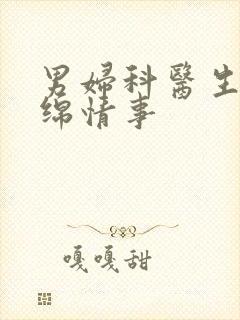 男婦科醫生
绵情事
嘎嘎甜